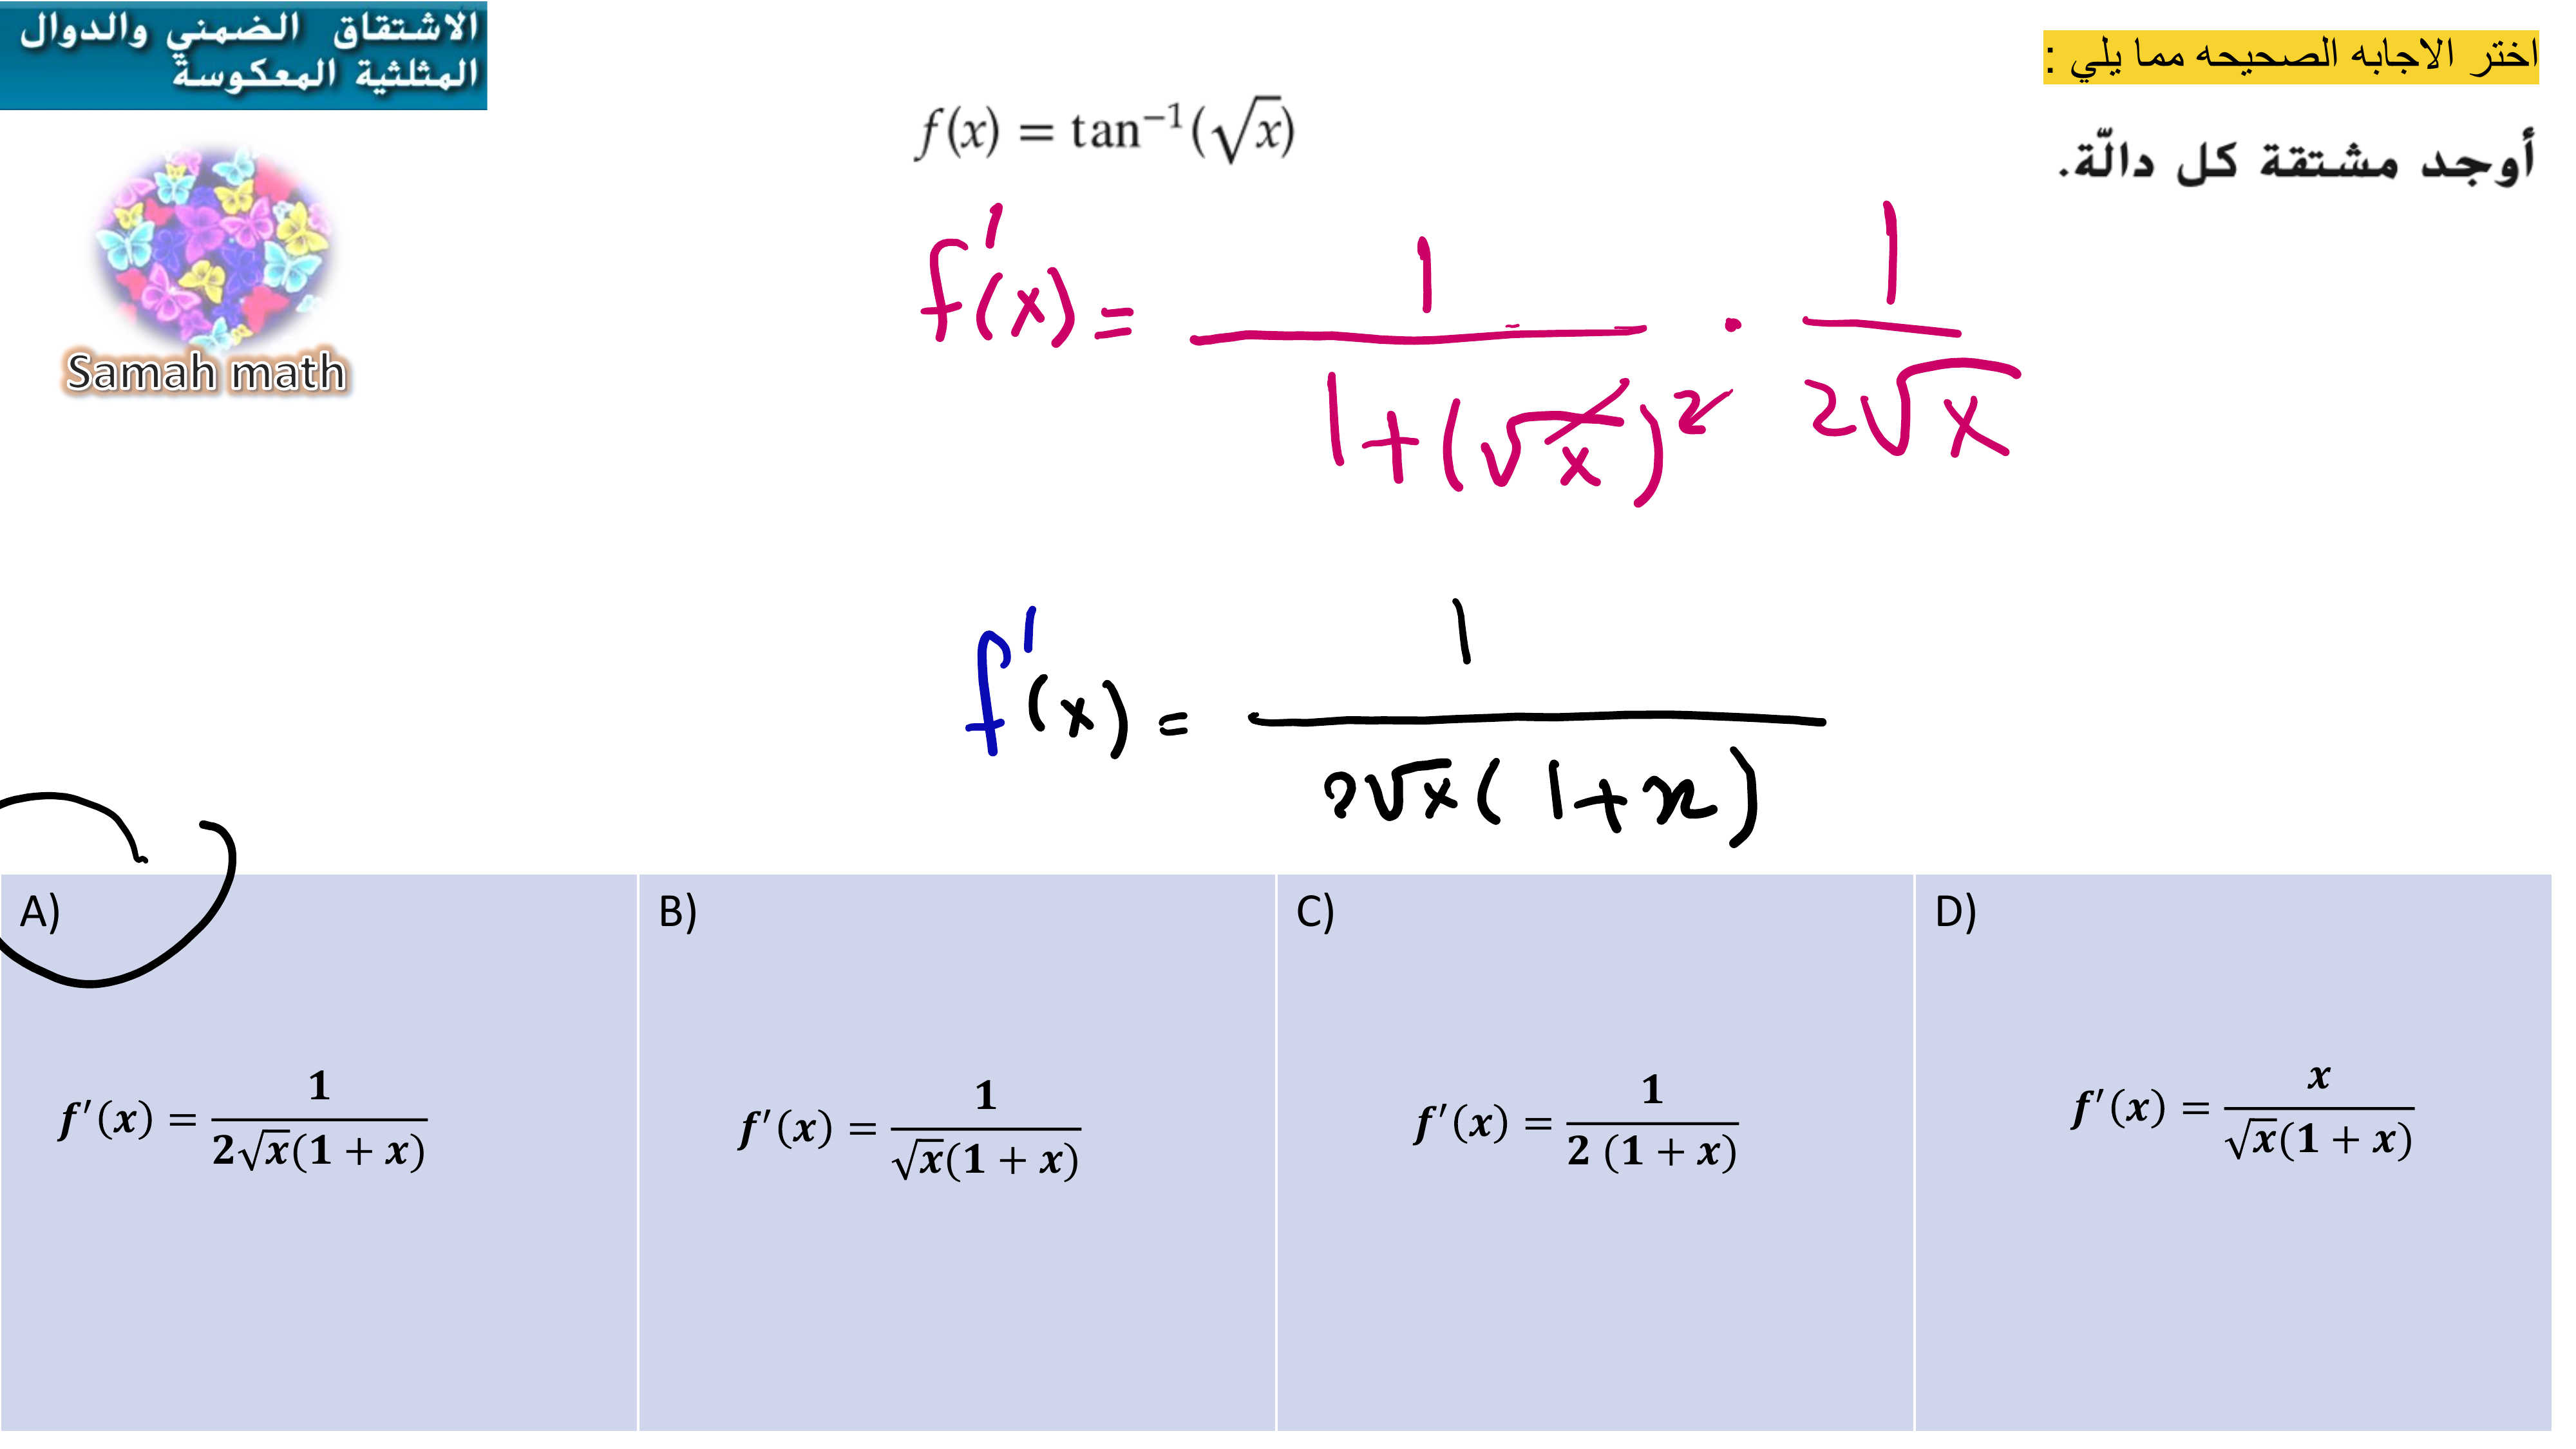 الاشتقاق الضمني والدوال
المثلثية المعكوسة
اختر الاجابه الصحيحه مما يلي :
أوجد مشتقة كل دالّة.
f(x) = tan⁻¹(√x)
Samah math
f'(x) = 1/(1+(√x)²) · 1/(2√x)
f'(x) = 1/(2√x(1+x))
A)
f′(x) = 1/(2√x(1 + x))
B)
f′(x) = 1/(√x(1 + x))
C)
f′(x) = 1/(2 (1 + x))
D)
f′(x) = x/(√x(1 + x))